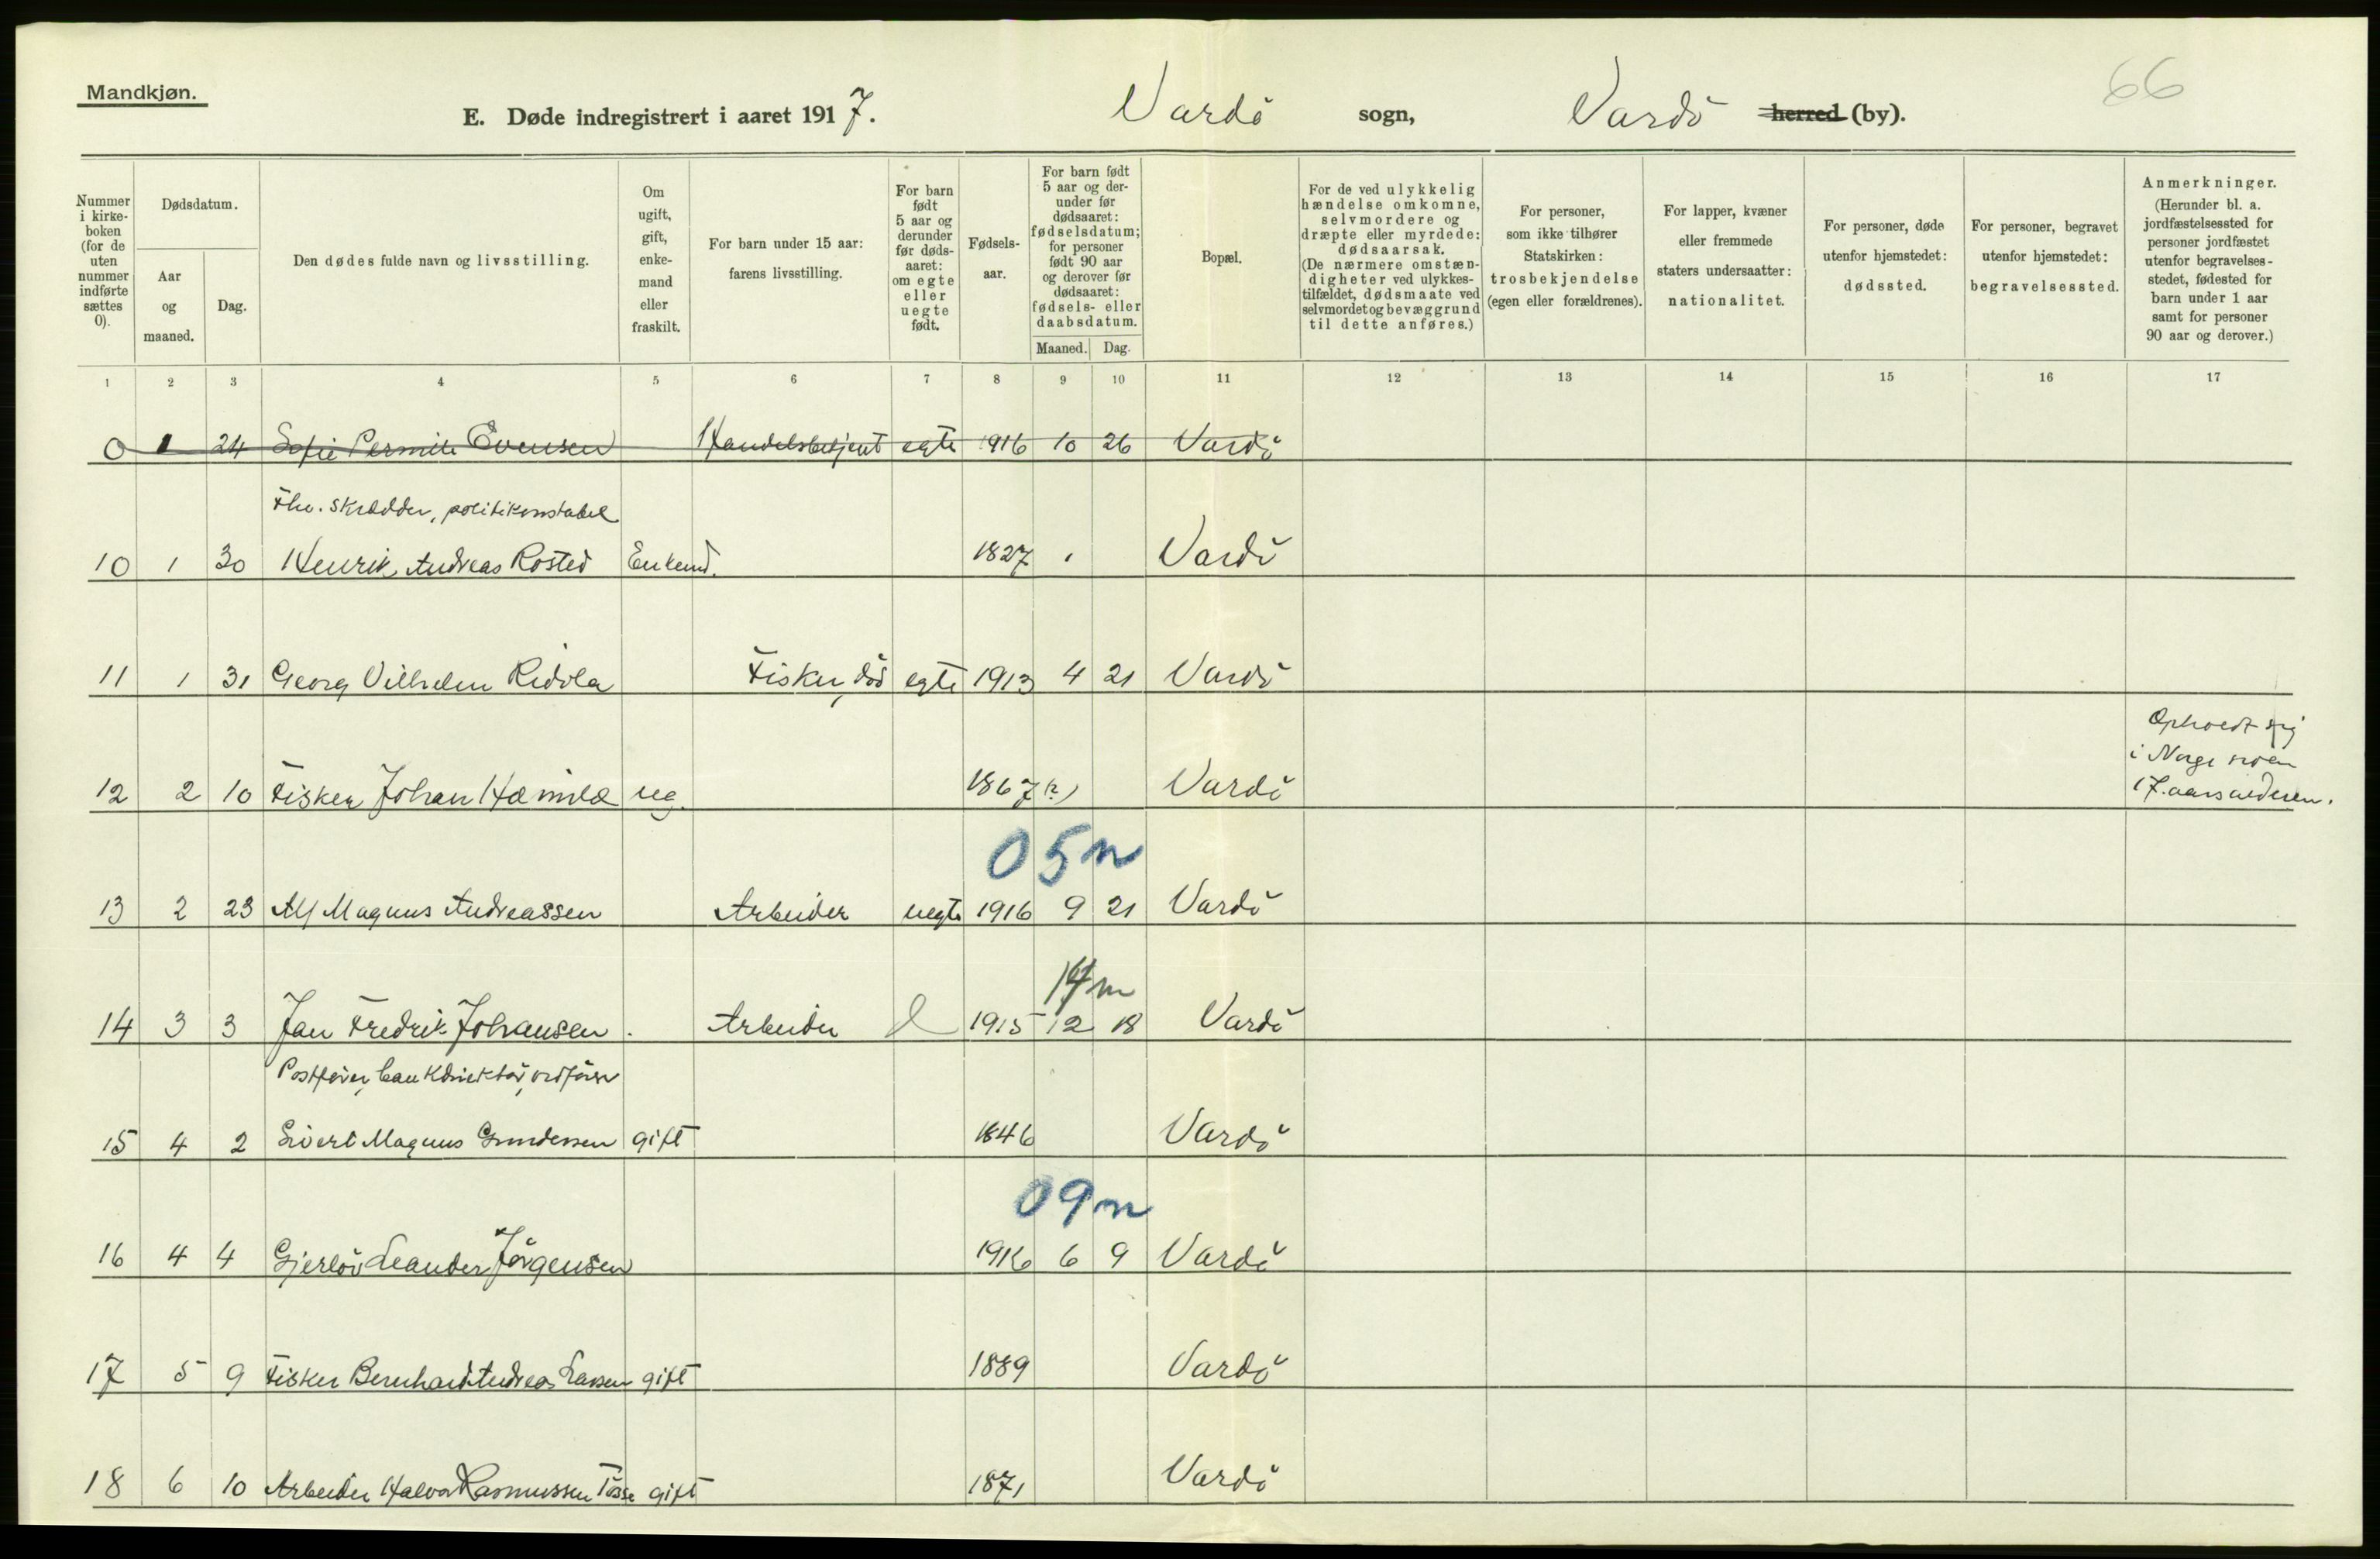 Mandkjøn.
66
E. Døde indregistrert i aaret 1917. Vardö sogn, Vardö herred (by).
Nummer i kirke-boken (for de uten nummer indførte sættes 0).
Dødsdatum.
Aar og maaned.
Dag.
Den dødes fulde navn og livsstilling.
Om ugift, gift, enke-mand eller fraskilt.
For barn under 15 aar: farens livsstilling.
For barn født 5 aar og derunder før døds-aaret: om egte eller uegte født.
Fødsels-aar.
For barn født 5 aar og der-under før dødsaaret: fødselsdatum; for personer født 90 aar og derover før dødsaaret: fødsels- eller daabsdatum.
Maaned. Dag.
Bopæl.
For de ved ulykkelig hændelse omkomne, selvmordere og dræpte eller myrdede: dødsaarsak. (De nærmere omstæn-digheter ved ulykkes-tilfældet, dødsmaate ved selvmord et og bevæggrund til dette anføres.)
For personer, som ikke tilhører Statskirken: trosbekjendelse (egen eller forældrenes).
For lapper, kvæner eller fremmede staters undersaatter: nationalitet.
For personer, døde utenfor hjemstedet: dødssted.
For personer, begravet utenfor hjemstedet: begravelsessted.
Anmerkninger. (Herunder bl. a. jordfæstelsessted for personer jordfæstet utenfor begravelses-stedet, fødested for barn under 1 aar samt for personer 90 aar og derover.)
1 2 3 4 5 6 7 8 9 10 11 12 13 14 15 16 17
0 1 24 Sofie Pernille Evensen Handelsbetjent egte 1916 10 26 Vardö
Fhv. skrædder, politikonstabel
10 1 30 Henrik Andreas Rosted Enkemd. 1827 Vardö
11 1 31 Georg Vilhelm Ridola Fisker, död egte 1913 4 21 Vardö
Opholdt sig
i Norge siden
12 2 10 Fisker Johan ug. 1867(?) Vardö 17.aarsalderen.
05m
13 2 23 Alf Magnus Andreassen Arbeider uegte 1916 9 21 Vardö
14m
14 3 3 Jan Fredrik Johansen. Arbeider 1915 12 18 Vardö
Postfører, bankdirektör, ordförer
15 4 2 Sivert Magnus Gundersen gift 1846 Vardö
09m
16 4 4 Gjerlöv Leander Jörgensen 1916 6 9 Vardö
17 5 9 Fisker Bernhard Andreas Larsen gift 1889 Vardö
18 6 10 Arbeider Halvor Rasmussen Tösse gift 1871 Vardö